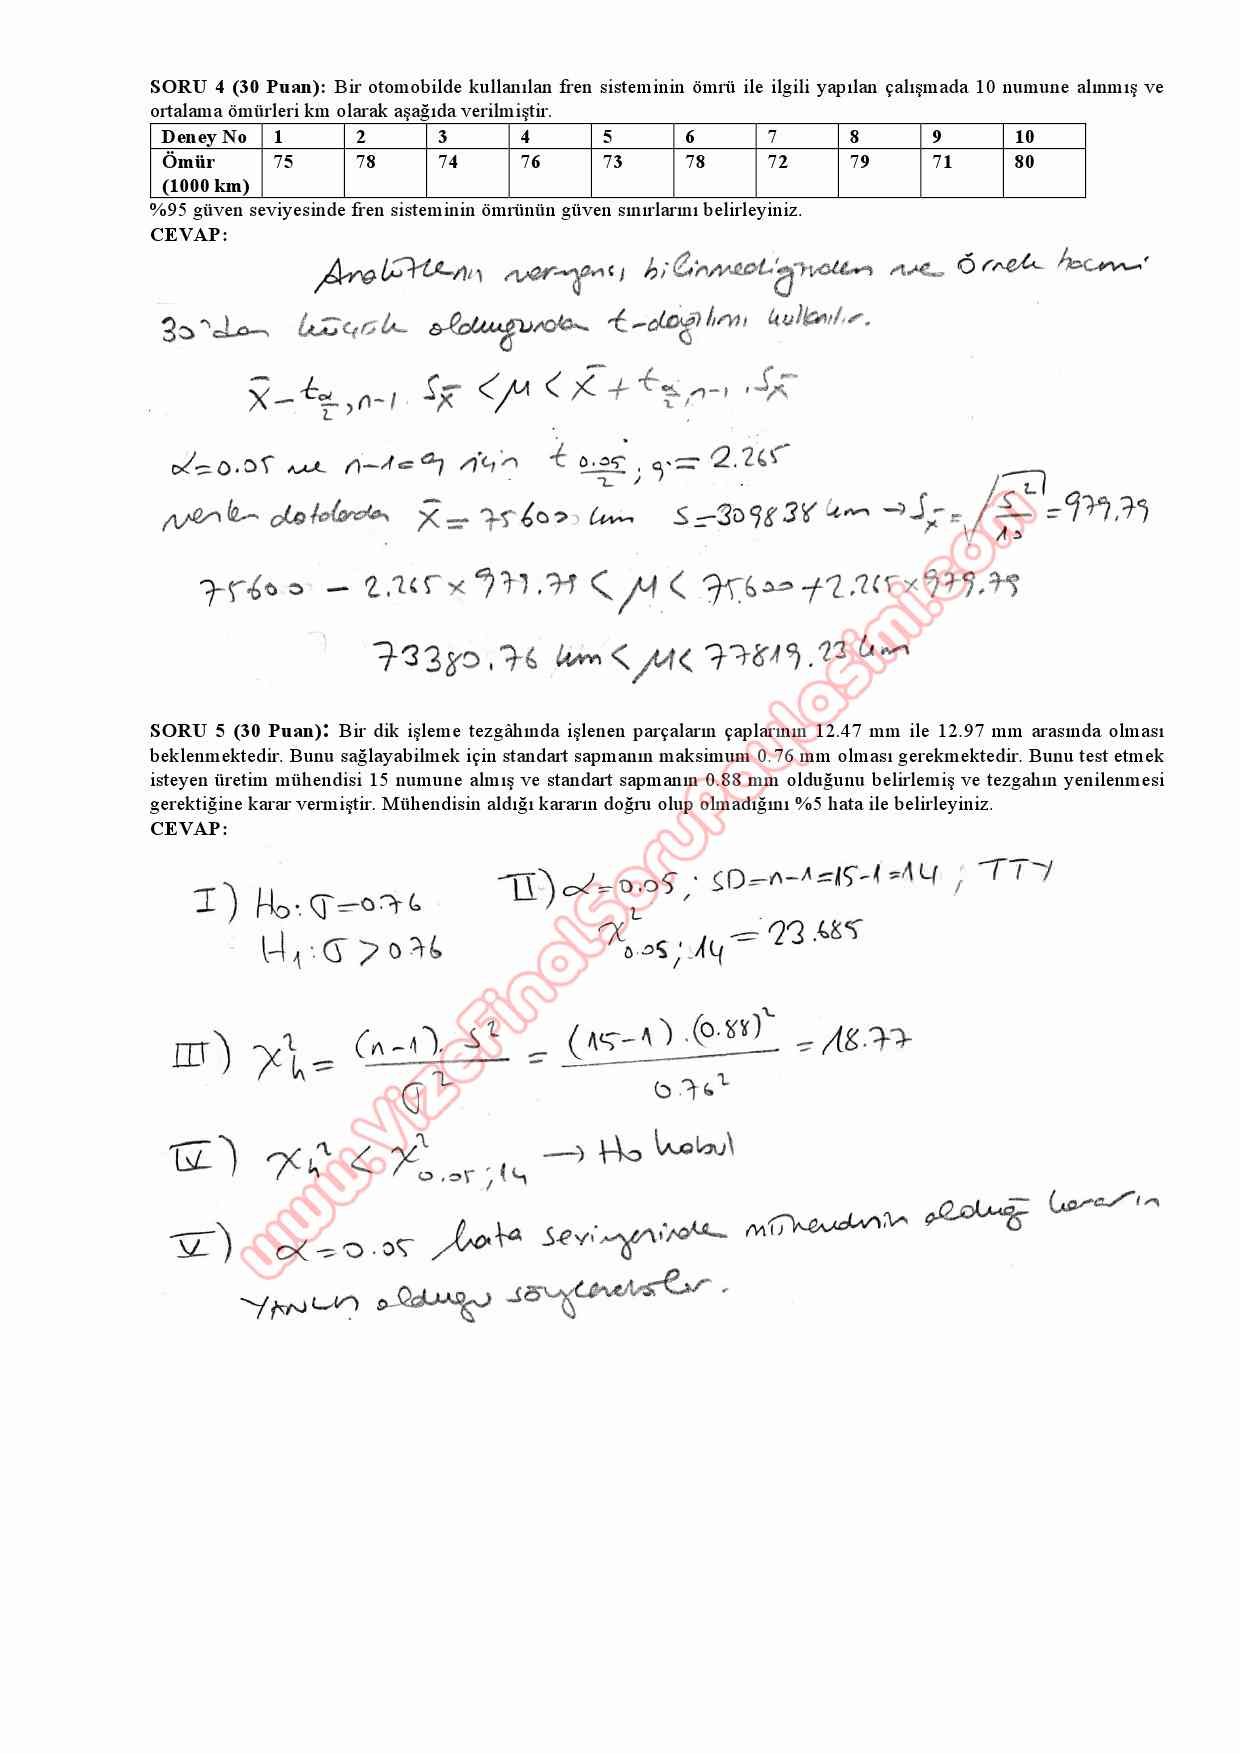 SORU 4 (30 Puan): Bir otomobilde kullanılan fren sisteminin ömrü ile ilgili yapılan çalışmada 10 numune alınmış ve
ortalama ömürleri km olarak aşağıda verilmiştir.
Deney No 1 2 3 4 5 6 7 8 9 10
Ömür 75 78 74 76 73 78 72 79 71 80
(1000 km)
%95 güven seviyesinde fren sisteminin ömrünün güven sınırlarını belirleyiniz.
CEVAP:
Anakütlenin varyansı bilinmediğinden ve örnek hacmi
30'dan küçük olduğundan t-dağılımı kullanılır.
X̄ - t α/2, n-1 . Sx̄ < μ < X̄ + t α/2, n-1 . Sx̄
α=0.05 ve n-1=9 için t 0.05/2 ; 9 = 2.265
verilen datalardan X̄ = 75600 km S=309838 km → Sx̄ = √(S²/10) = 979.79
75600 - 2.265 × 979.79 < μ < 75600 + 2.265 × 979.79
73380.76 km < μ < 77819.23 km
SORU 5 (30 Puan): Bir dik işleme tezgâhında işlenen parçaların çaplarının 12.47 mm ile 12.97 mm arasında olması
beklenmektedir. Bunu sağlayabilmek için standart sapmanın maksimum 0.76 mm olması gerekmektedir. Bunu test etmek
isteyen üretim mühendisi 15 numune almış ve standart sapmanın 0.88 mm olduğunu belirlemiş ve tezgahın yenilenmesi
gerektiğine karar vermiştir. Mühendisin aldığı kararın doğru olup olmadığını %5 hata ile belirleyiniz.
CEVAP:
I) H₀: σ=0.76
H₁: σ > 0.76
II) α=0.05 ; SD=n-1=15-1=14 ; TTY
χ² 0.05 ; 14 = 23.685
III) χ²h = (n-1). S² / σ² = (15-1).(0.88)² / 0.76² = 18.77
IV) χh² < χ² 0.05 ; 14 → H₀ kabul
V) α=0.05 hata seviyesinde mühendisin aldığı kararın
YANLIŞ olduğu söylenebilir.
www.VizeFinalSoruPaylasimi.com